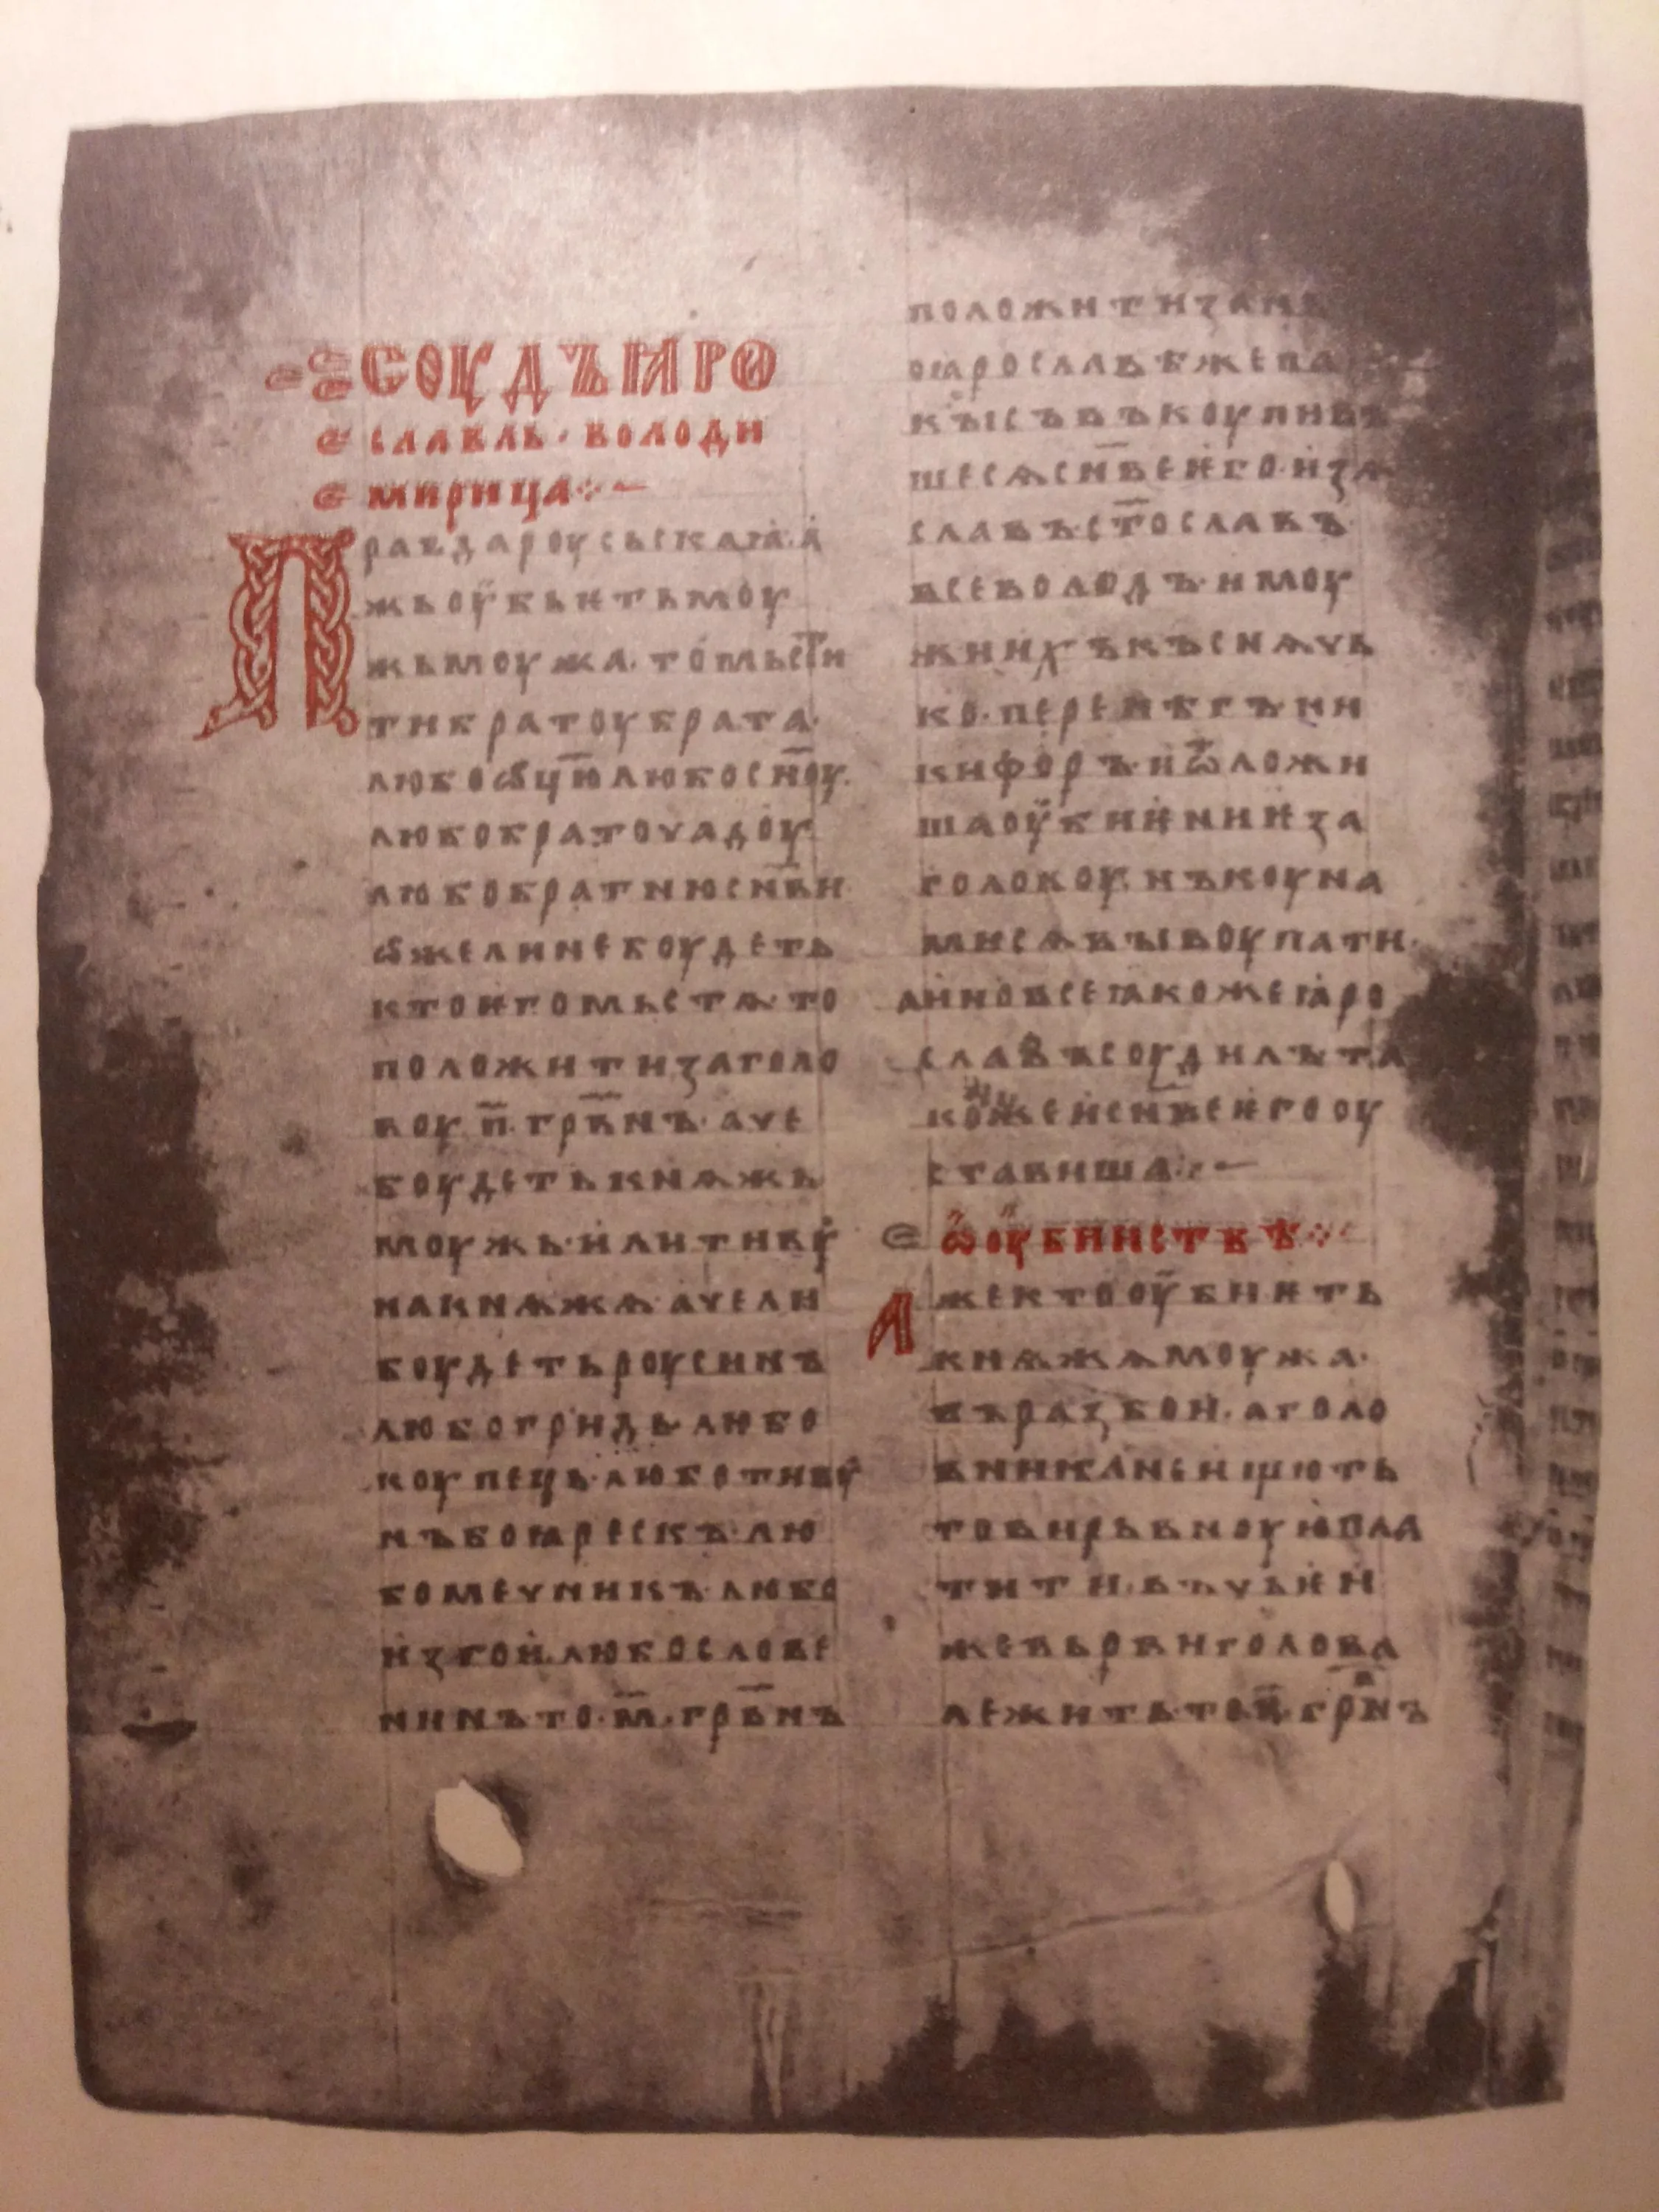 СОУДЪ ꙖРО
СЛАВЛЬ · ВОЛОДИ
МИРИЦА
ПРАВДА РОУСЬСКАꙖ · А
ЖЬ ОУБЬѤТЬ МОУ
ЖЬ МОУЖА · ТО МЬСТИ
ТИ БРАТОУ БРАТА ·
ЛЮБО ѠЦ҃Ю ЛЮБО СН҃ОУ ·
ЛЮБО БРАТОУЧАДОУ ·
ЛЮБО БРАТНЮ СН҃ВИ
ѠЖЕ ЛИ НЕ БОУДЕТЬ
КТО ѤГО МЬСТѦ · ТО
ПОЛОЖИТИ ЗА ГОЛО
ВОУ · П҃ · ГРВ҃НЪ · АЧЕ
БОУДЕТЬ КНѦЖЬ
МОУЖЬ · ИЛИ ТИВУ
НА КНѦЖѦ · АЧЕ ЛИ
БОУДЕТЬ РОУСИНЪ
ЛЮБО ГРИДЬ · ЛЮБО
КОУПЕЦЬ · ЛЮБО ТИВУ
НЪ БОꙖРЕСКЪ · ЛЮ
БО МЕЧНИКЪ · ЛЮБО
ИЗГОИ · ЛЮБО СЛОВЕ
НИНЪ ТО · М҃ · ГРВ҃НЪ
ПОЛОЖИТИ ЗА НЬ
ОꙖРОСЛАВѢ ЖЕ ПА
КЫ СЪВЪКОУПИВЪ
ШЕСѦ СН҃ВЕ ѤГО · ИЗѦ
СЛАВЪ · СТ҃ОСЛАВЪ ·
ВСЕВОЛОДЪ · И МОУ
ЖИ ИХЪ КЪСНѦЧЬ
КО · ПЕРЕНѢГЪ · НИ
КИФОРЪ · И Ѿ ЛОЖИ
ША ОУБИѤНИѤ ЗА
ГОЛОВОУ · НЪ КОУНА
МИ СѦ ВЫВОУПАТИ ·
А ИНО ВСЕ ꙖКОЖЕ ꙖРО
СЛАВЪ СОУДИЛЪ ТА
КОЖЕ И СН҃ВЕ ѤГО ОУ
СТАВИША
Ѡ ОУБИИСТВѢ
АЖЕ КТО ОУБИѤТЬ
КНѦЖѦ МОУЖА ·
ВЪ РАЗБОИ · А ГОЛО
ВНИКА НЕ ИЩЮТЬ
ТО ВИРЬВНОУЮ ПЛА
ТИТИ · ВЪ ЧЬѤИ
ЖЕ ВЬРВИ ГОЛОВА
ЛЕЖИТЬ · ТО П҃ · ГРВ҃НЪ